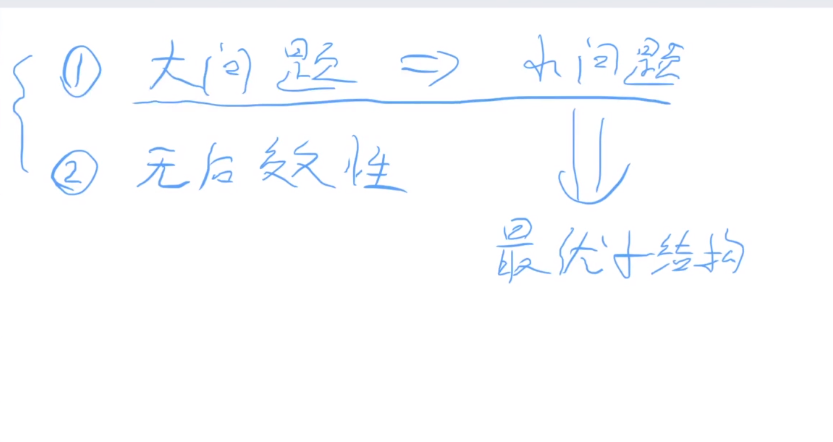 ① 大问题 => 小问题
② 无后效性
最优子结构